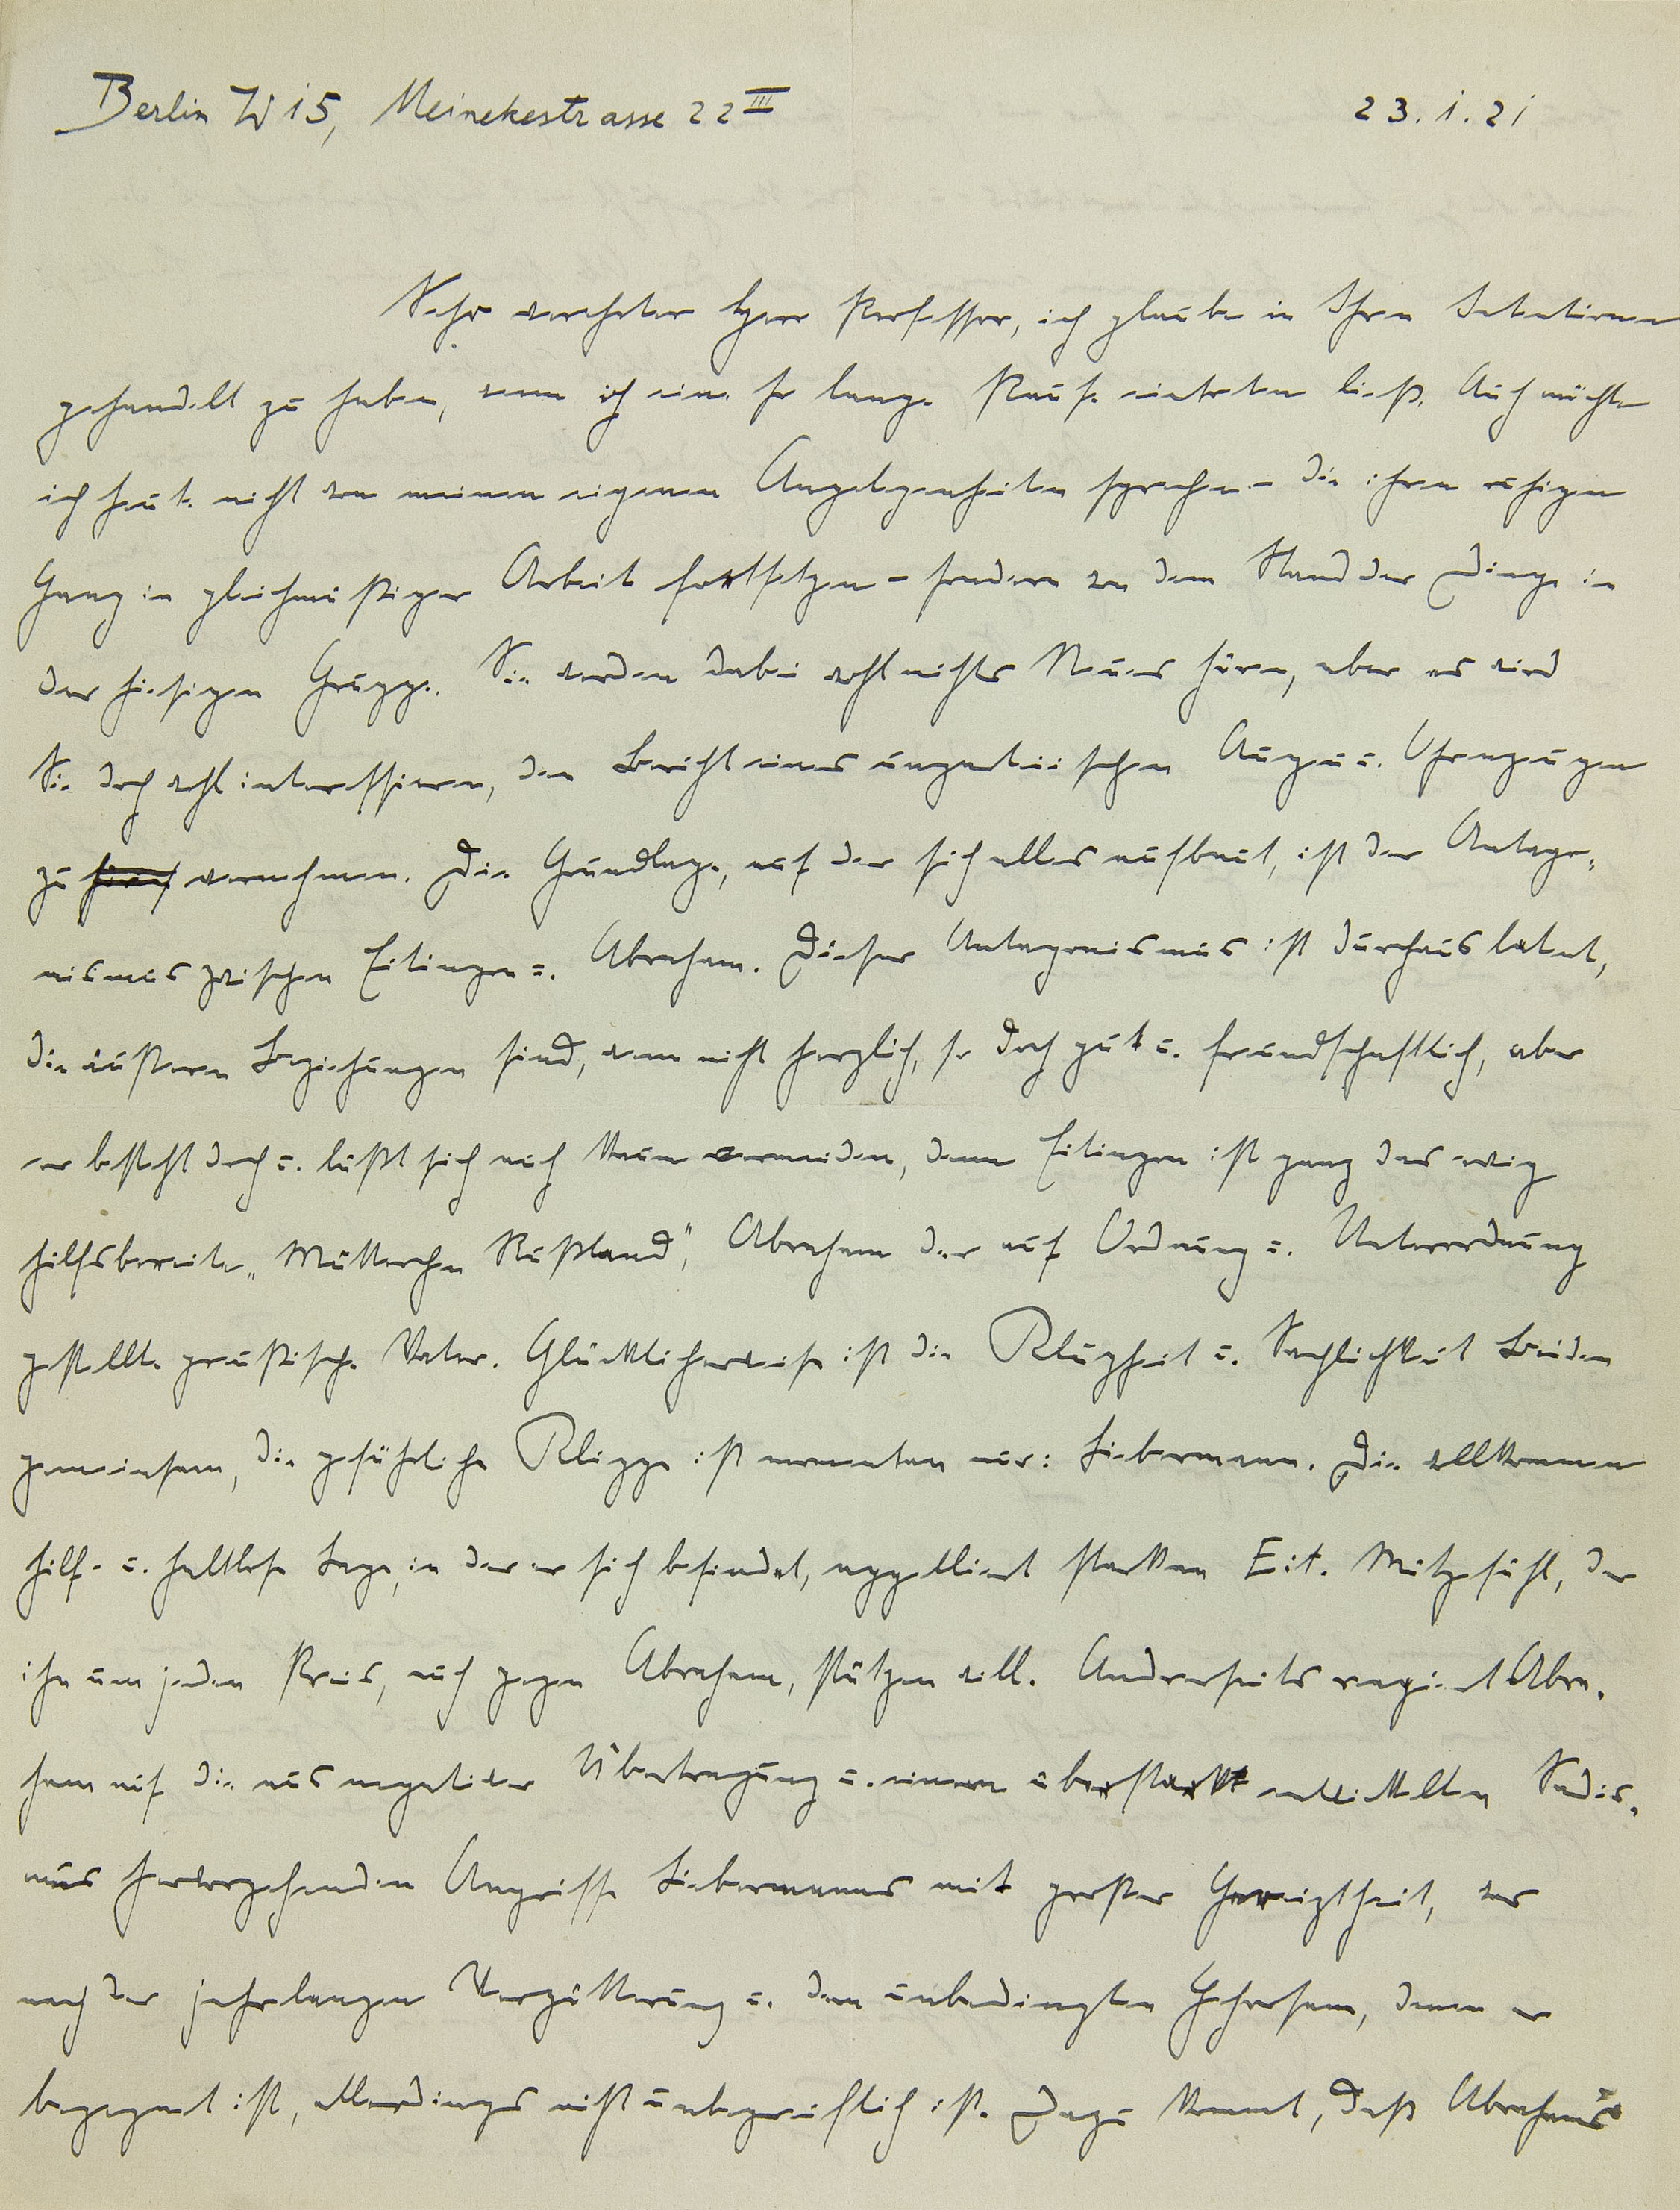 Berlin W 15, Meinekestrasse 22 III 23. 1. 21
Sehr verehrter Herr Professor, ich glaube in Ihren Intentionen
gehandelt zu haben, wenn ich eine so lange Pause eintreten ließ. Auch möchte
ich heute nicht von meinen eigenen Angelegenheiten sprechen – die ihren ruhigen
Gang in gleichmäßiger Arbeit fortsetzen – sondern von dem Stand der Dinge in
der hiesigen Gruppe. Sie werden dabei wohl nichts Neues hören, aber es wird
Sie doch wohl interessieren, den Bericht eines unparteiischen Augen u. Ohrenzeugen
zu vernehmen. Die Grundlage, auf der sich alles aufbaut, ist der Antago-
nismus zwischen Eitingon u. Abraham. Dieser Antagonismus ist durchaus latent,
die äußeren Beziehungen sind, wenn nicht herzlich, so doch gut u. freundschaftlich, aber
er besteht doch u. läßt sich auch kaum vermeiden, denn Eitingon ist ganz das ewig
hilfsbereite „Mütterchen Rußland", Abraham der auf Ordnung u. Unterordnung
gestellte preußische Vater. Glücklicherweise ist die Klugheit u. Sachlichkeit Beiden
gemeinsam, die gefährliche Klippe ist momentan nur: Liebermann. Die vollkommen
hilf- u. haltlose Lage, in der er sich befindet, appelliert starkan Eit. Mitgefühl, der
ihn um jeden Preis, auch gegen Abraham, stützen will. Andrerseits reagiert Abra-
ham auf die aus negativer Übertragung u. einem überstark entwickelten Sadis-
mus hervorgehenden Angriffe Liebermanns mit großer Gereiztheit, was
nach der jahrelangen Verzärtelung u. dem unbedingten Gehorsam, denen er
begegnet ist, allerdings nicht unbegreiflich ist. Dazu kommt, daß Abrahams